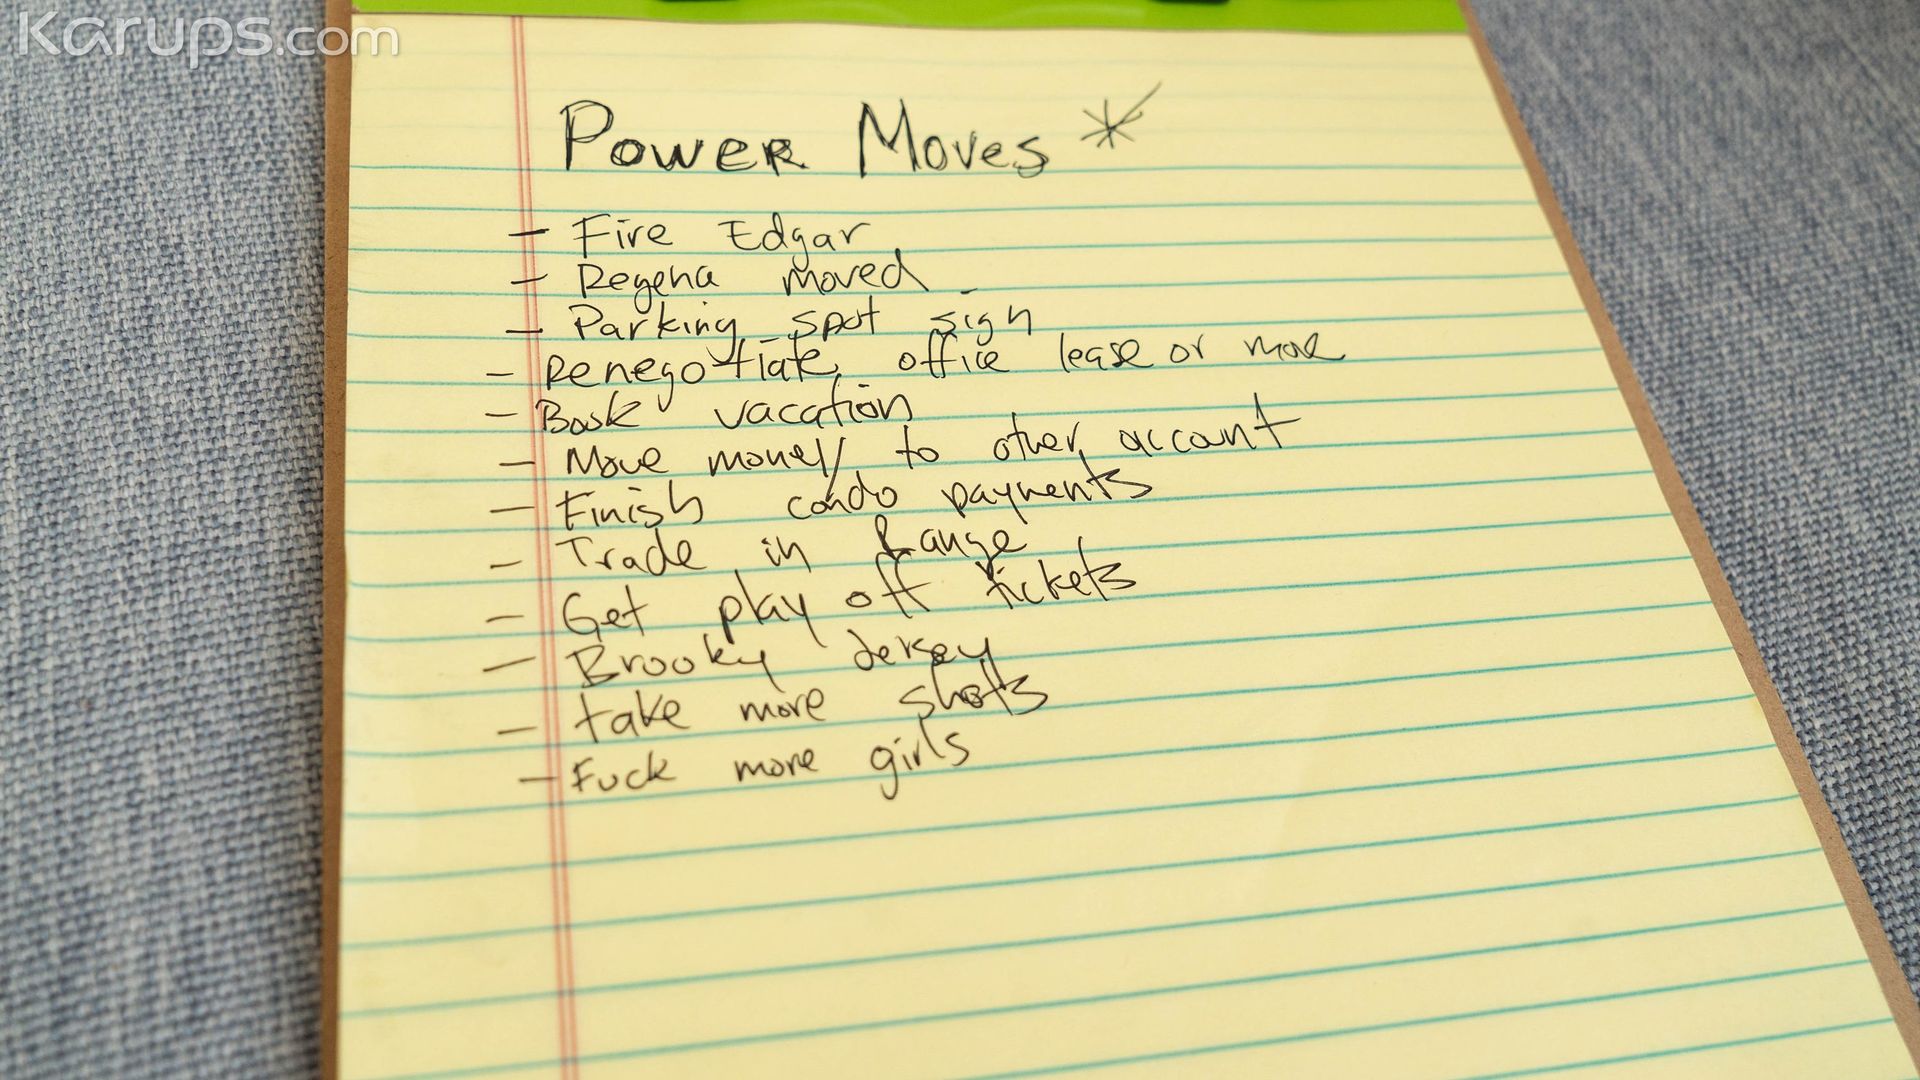 Karups.com
Power Moves *
- Fire Edgar
- Regena moved
- Parking spot sign
- Renegotiate office lease or move
- Book vacation
- Move money to other account
- Finish condo payments
- Trade in Range
- Get play off tickets
- Brooky Jersey
- take more shots
- Fuck more girls